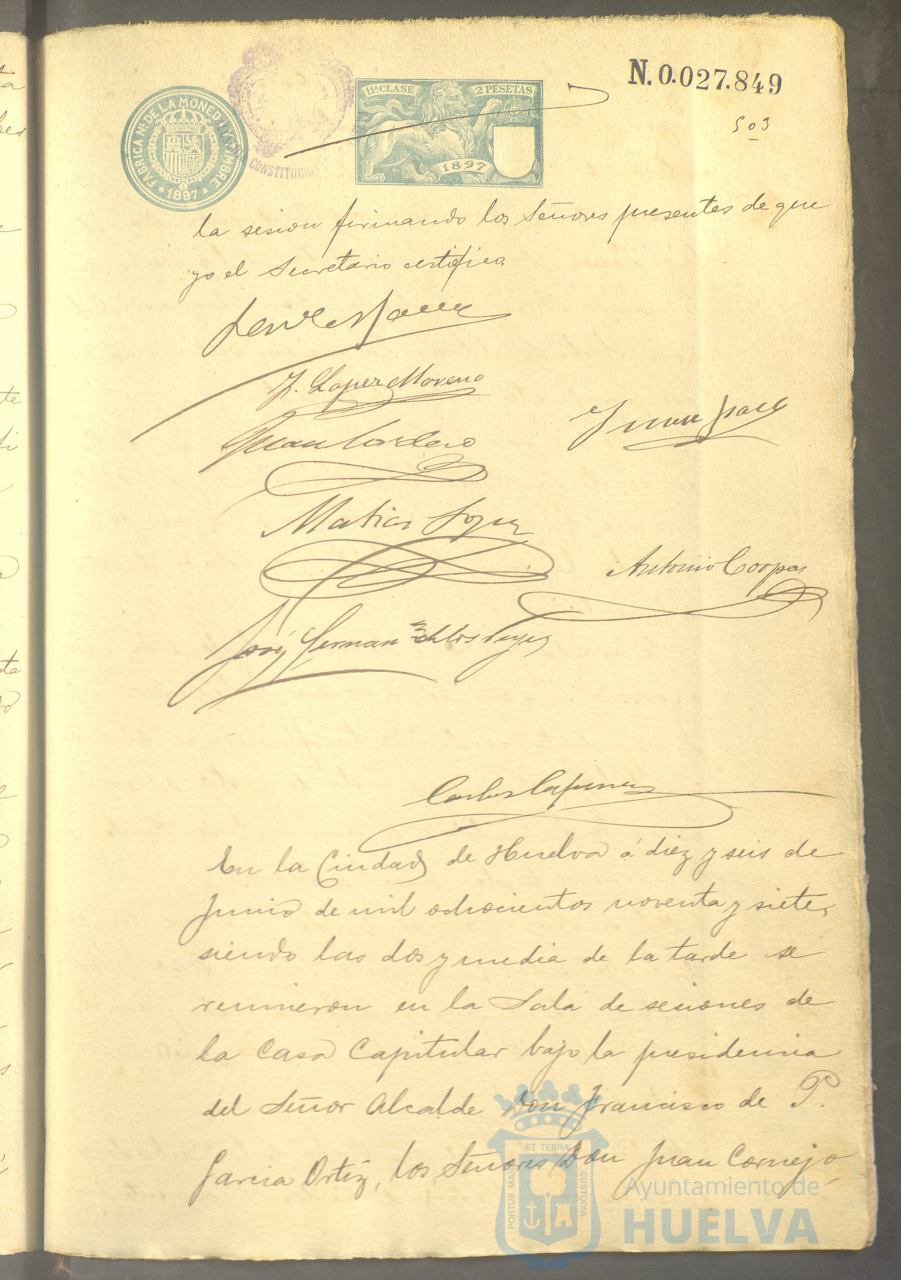 FABRICA NL. DE LA MONEDA Y TIMBRE
1897
CONSTITUCI
11ª CLASE 2 PESETAS
1897
N.0.027.849
503
la sesion firmando los Señores presentes de que
yo el Secretario certifico
J. Lopez Moreno
Juan
Matias Lopez
Antonio Corpas
José Hernan de los Reyes
Carlos
En la Ciudad de Huelva á diez y seis de
Junio de mil ochocientos noventa y siete,
siendo las dos y media de la tarde se
reunieron en la Sala de sesiones de
la Casa Capitular bajo la presidencia
del Señor Alcalde Don Francisco de P.
Garcia Ortiz, los Señores Don Juan Cornejo
PORTUS MA ET TERRA CUSTODIA
Ayuntamiento de
HUELVA